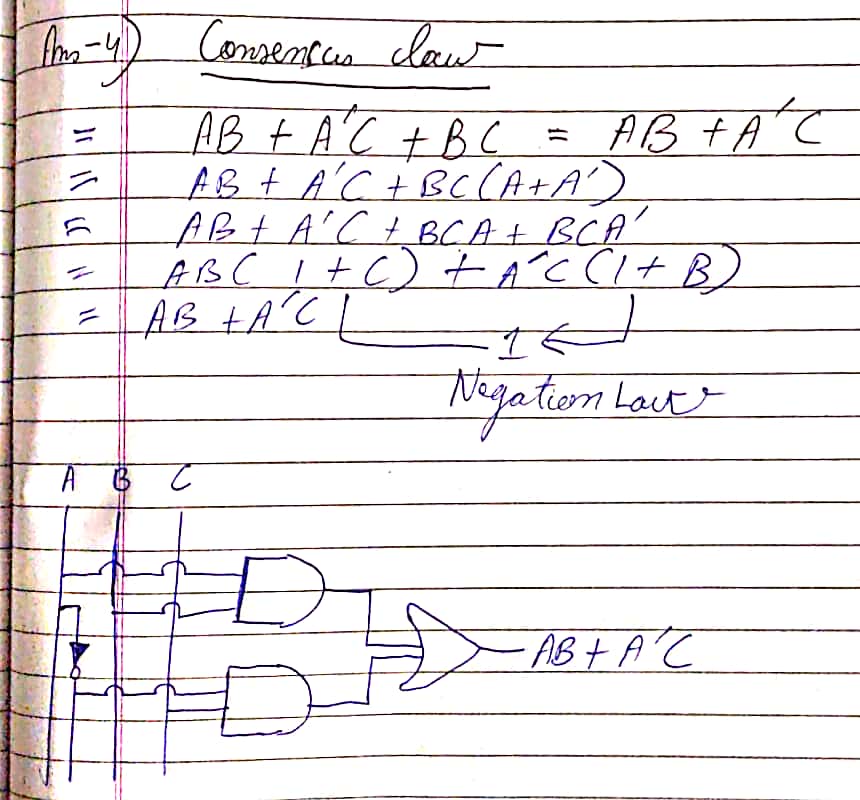 Ans-4) Consensus law
= AB + A'C + BC = AB + A'C
= AB + A'C + BC(A+A')
= AB + A'C + BCA + BCA'
= AB( 1 + C) + A'C (1 + B)
= AB + A'C
1
Negation Law
A B C
AB + A'C